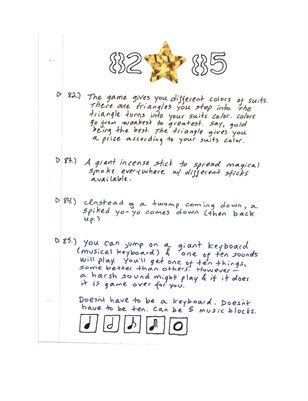 82 85
▷ 82.) The game gives you different colors of suits.
There are triangles you step into. The
triangle turns into your suits color. Colors
go from weakest to greatest. Say, gold
being the best. The triangle gives you
a prize according to your suits color.
▷ 83.) A giant incense stick to spread magical
smoke everywhere w/ different sticks
available.
▷ 84.) Instead of a twomp coming down, a
spiked yo-yo comes down (then back
up.)
▷ 85.) you can jump on a giant keyboard
(musical keyboard) & one of ten sounds
will play. You'll get one of ten things,
some better than others. However —
a harsh sound might play & if it does
it is game over for you.
Doesn't have to be a keyboard. Doesn't
have to be ten. Can be 5 music blocks.